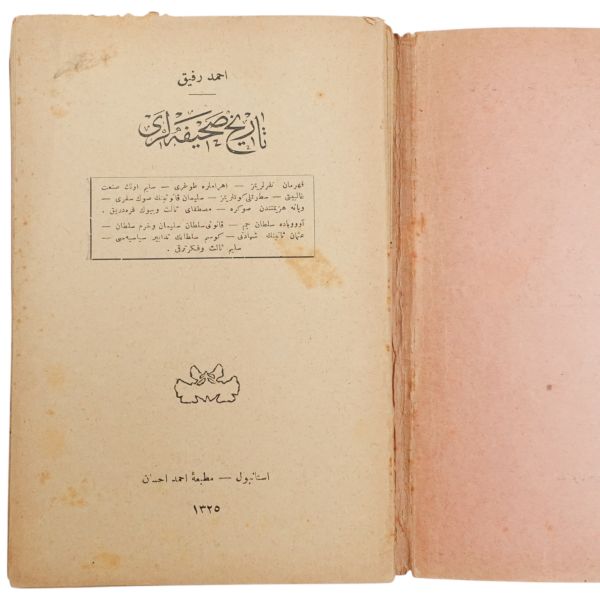 احمد رفيق
تاريخ صحيفه لرى
قهرمان نفرلريمز — اهرامله طوغرى — سليم اولك صنعت
غالبيتى — سطوتلى كونلريمز — سليمان قانونينك صوك سفرى —
ويانه هزيمتندن صوكره — مصطفاى ثالث وبيوك فره دريق .
آوروپاده سلطان جم — قانونى سلطان سليمان وخرم سلطان —
عثمان ثانينك شهادتى — كوسم سلطانك تدابير سياسيه سى —
سليم ثالث وفكر ترقى .
استانبول — مطبعهٔ احمد احسان
١٣٢٥